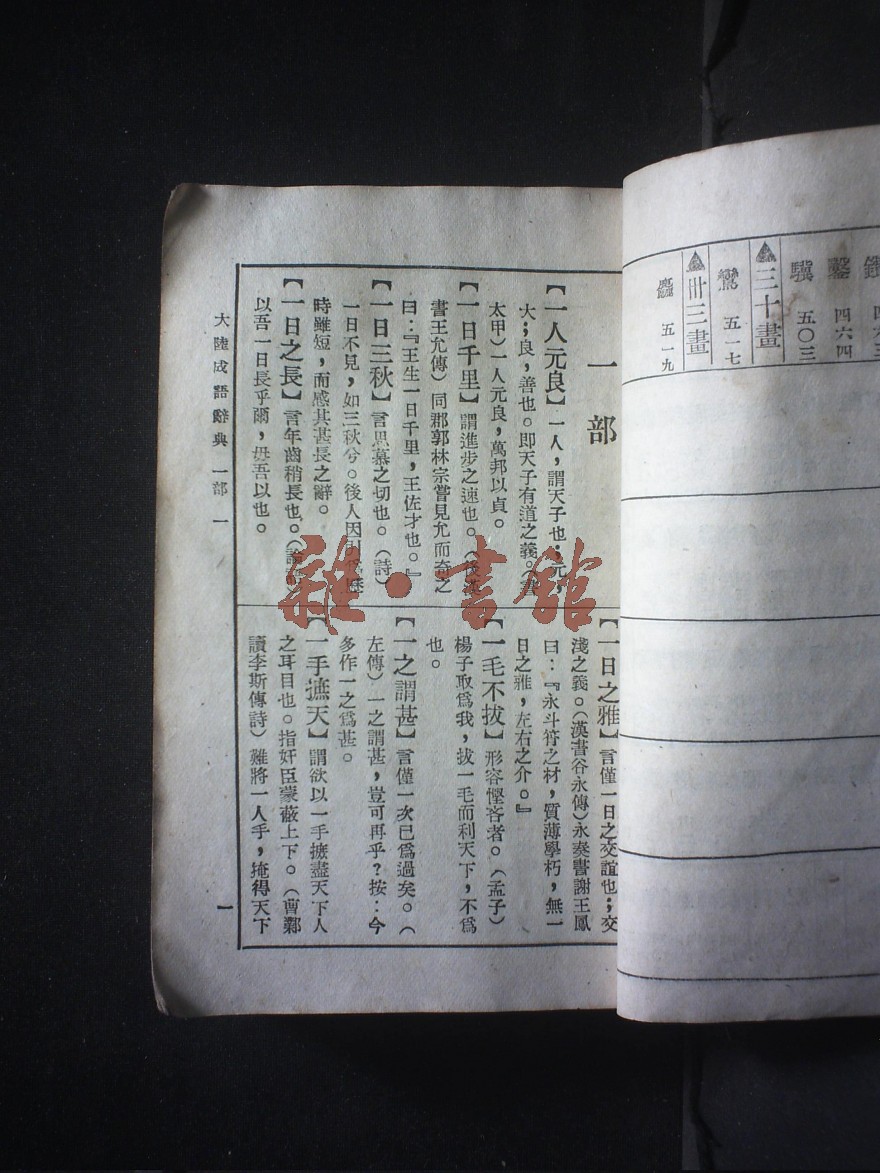 鑿
四六四
驥
五〇三
三十畫
鸞
五一七
卅三畫
麤
五一九
一部
【一人元良】一人，謂天子也；元，
大；良，善也。即天子有道之義。（書
太甲）一人元良，萬邦以貞。
【一日千里】謂進步之速也。（後漢
書王允傳）同郡郭林宗嘗見允而奇之
曰：『王生一日千里，王佐才也。』
【一日三秋】言思慕之切也。（詩）
一日不見，如三秋兮。後人因引爲歷
時雖短，而感其甚長之辭。
【一日之長】言年齒稍長也。（論語）
以吾一日長乎爾，毋吾以也。
【一日之雅】言僅一日之交誼也；交
淺之義。（漢書谷永傳）永奏書謝王鳳
曰：『永斗筲之材，質薄學朽，無一
日之雅，左右之介。』
【一毛不拔】形容慳吝者。（孟子）
楊子取爲我，拔一毛而利天下，不爲
也。
【一之謂甚】言僅一次已爲過矣。（
左傳）一之謂甚，豈可再乎？按：今
多作一之爲甚。
【一手撫天】謂欲以一手掩盡天下人
之耳目也。指奸臣蒙蔽上下。（曹鄴
讀李斯傳詩）難將一人手，掩得天下
大陸成語辭典 一部 一
一
雜·書館